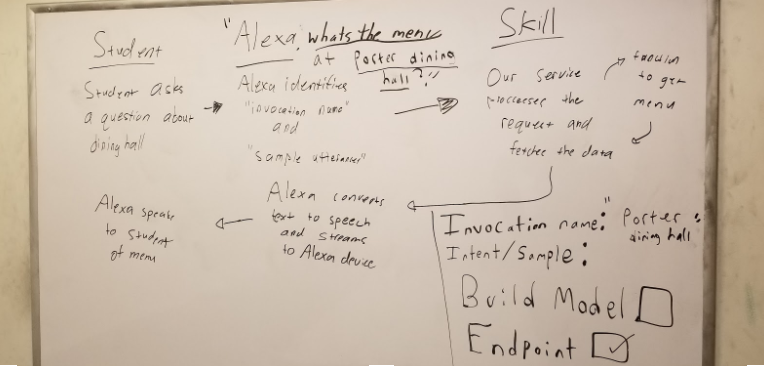 Student
Student asks
a question about
dining hall
"Alexa, whats the menu
at Porter dining
hall?"
Alexa identifies
"invocation name"
and
"sample utterances"
Skill
Our service
processes the
request and
fetches the data
function
to get
menu
Alexa converts
text to speech
and streams
to Alexa device
Alexa speaks
to student
of menu
Invocation name: "Porter
dining hall
Intent/Sample:
Build Model
Endpoint